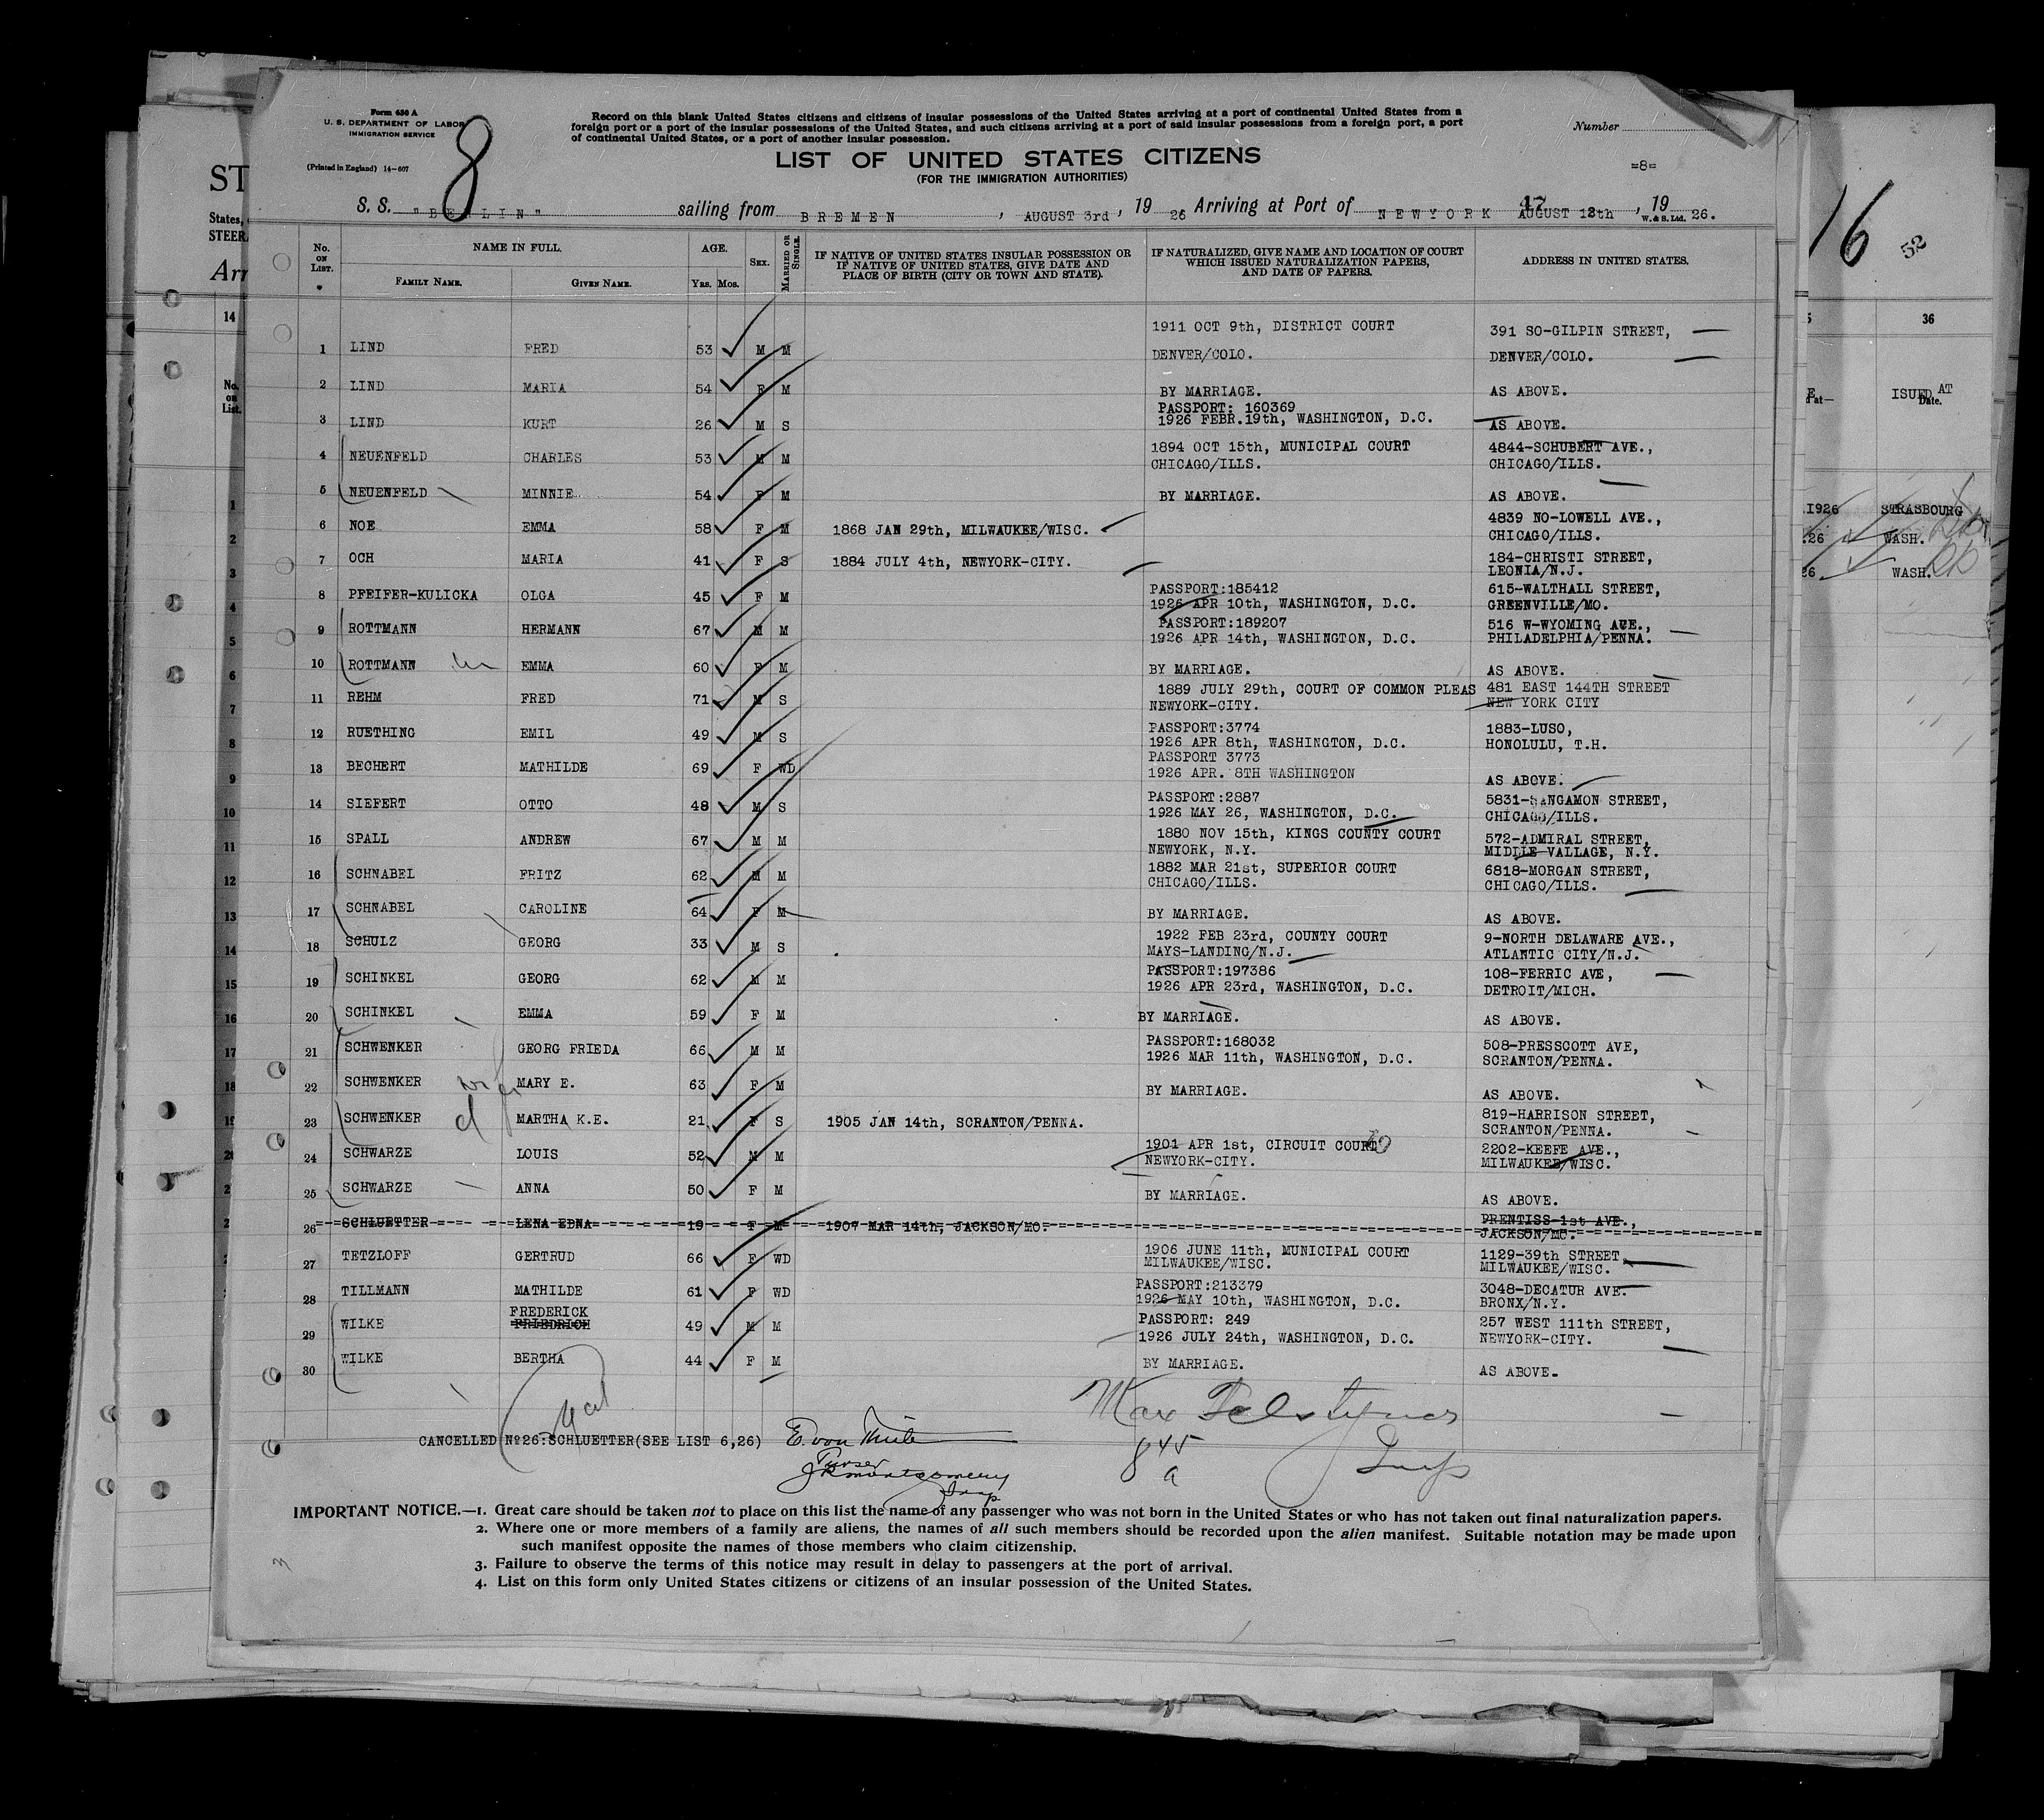 Form 630 A
U. S. DEPARTMENT OF LABOR
IMMIGRATION SERVICE
(Printed in England) 14-607
8
Record on this blank United States citizens and citizens of insular possessions of the United States arriving at a port of continental United States from a
foreign port or a port of the insular possessions of the United States, and such citizens arriving at a port of said insular possessions from a foreign port, a port
of continental United States, or a port of another insular possession.
Number
LIST OF UNITED STATES CITIZENS
(FOR THE IMMIGRATION AUTHORITIES)
=8=
S. S. "BERLIN" sailing from BREMEN, AUGUST 3rd, 1926 Arriving at Port of NEWYORK AUGUST 12th, 1926.
17
W. & S. Ltd.
No. ON LIST. NAME IN FULL. AGE. SEX. MARRIED OR SINGLE. IF NATIVE OF UNITED STATES INSULAR POSSESSION OR IF NATIVE OF UNITED STATES, GIVE DATE AND PLACE OF BIRTH (CITY OR TOWN AND STATE). IF NATURALIZED, GIVE NAME AND LOCATION OF COURT WHICH ISSUED NATURALIZATION PAPERS, AND DATE OF PAPERS. ADDRESS IN UNITED STATES.
FAMILY NAME. GIVEN NAME. YRS. MOS.
1 LIND FRED 53 M M 1911 OCT 9th, DISTRICT COURT DENVER/COLO. 391 SO-GILPIN STREET, DENVER/COLO.
2 LIND MARIA 54 F M BY MARRIAGE. AS ABOVE.
3 LIND KURT 26 M S PASSPORT: 160369 1926 FEBR.19th, WASHINGTON, D.C. AS ABOVE.
4 NEUENFELD CHARLES 53 M M 1894 OCT 15th, MUNICIPAL COURT CHICAGO/ILLS. 4844-SCHUBERT AVE., CHICAGO/ILLS.
5 NEUENFELD MINNIE 54 F M BY MARRIAGE. AS ABOVE.
6 NOE EMMA 58 F M 1868 JAN 29th, MILWAUKEE/WISC. 4839 NO-LOWELL AVE., CHICAGO/ILLS.
7 OCH MARIA 41 F S 1884 JULY 4th, NEWYORK-CITY. 184-CHRISTI STREET, LEONIA/N.J.
8 PFEIFER-KULICKA OLGA 45 F M PASSPORT:185412 1926 APR 10th, WASHINGTON, D.C. 615-WALTHALL STREET, GREENVILLE/MO.
9 ROTTMANN HERMANN 67 M M PASSPORT:189207 1926 APR 14th, WASHINGTON, D.C. 516 W-WYOMING AVE., PHILADELPHIA/PENNA.
10 ROTTMANN EMMA 60 F M BY MARRIAGE. AS ABOVE.
11 REHM FRED 71 M S 1889 JULY 29th, COURT OF COMMON PLEAS NEWYORK-CITY. 481 EAST 144TH STREET NEW YORK CITY
12 RUETHING EMIL 49 M S PASSPORT:3774 1926 APR 8th, WASHINGTON, D.C. 1883-LUSO, HONOLULU, T.H.
13 BECHERT MATHILDE 69 F WD PASSPORT 3773 1926 APR. 8TH WASHINGTON AS ABOVE.
14 SIEFERT OTTO 48 M S PASSPORT:2887 1926 MAY 26, WASHINGTON, D.C. 5831-SANGAMON STREET, CHICAGO/ILLS.
15 SPALL ANDREW 67 M M 1880 NOV 15th, KINGS COUNTY COURT NEWYORK, N.Y. 572-ADMIRAL STREET, MIDDLE VALLAGE, N.Y.
16 SCHNABEL FRITZ 62 M M 1882 MAR 21st, SUPERIOR COURT CHICAGO/ILLS. 6818-MORGAN STREET, CHICAGO/ILLS.
17 SCHNABEL CAROLINE 64 F M BY MARRIAGE. AS ABOVE.
18 SCHULZ GEORG 33 M S 1922 FEB 23rd, COUNTY COURT MAYS-LANDING/N.J. 9-NORTH DELAWARE AVE., ATLANTIC CITY/N.J.
19 SCHINKEL GEORG 62 M M PASSPORT:197386 1926 APR 23rd, WASHINGTON, D.C. 108-FERRIC AVE, DETROIT/MICH.
20 SCHINKEL EMMA 59 F M BY MARRIAGE. AS ABOVE.
21 SCHWENKER GEORG FRIEDA 66 M M PASSPORT:168032 1926 MAR 11th, WASHINGTON, D.C. 508-PRESSCOTT AVE, SCRANTON/PENNA.
22 SCHWENKER MARY E. 63 F M BY MARRIAGE. AS ABOVE.
23 SCHWENKER MARTHA K.E. 21 F S 1905 JAN 14th, SCRANTON/PENNA. 819-HARRISON STREET, SCRANTON/PENNA.
24 SCHWARZE LOUIS 52 M M 1901 APR 1st, CIRCUIT COURT NEWYORK-CITY. 2202-KEEFE AVE., MILWAUKEE/WISC.
25 SCHWARZE ANNA 50 F M BY MARRIAGE. AS ABOVE.
26 SCHLUETTER LENA EDNA 19 F M 1907 MAR 14th, JACKSON/MO. PRENTISS-1st AVE., JACKSON/MO.
27 TETZLOFF GERTRUD 66 F WD 1906 JUNE 11th, MUNICIPAL COURT MILWAUKEE/WISC. 1129-39th STREET, MILWAUKEE/WISC.
28 TILLMANN MATHILDE 61 F WD PASSPORT:213379 1926 MAY 10th, WASHINGTON, D.C. 3048-DECATUR AVE. BRONX/N.Y.
29 WILKE FREDERICK FRIEDRICH 49 M M PASSPORT: 249 1926 JULY 24th, WASHINGTON, D.C. 257 WEST 111th STREET, NEWYORK-CITY.
30 WILKE BERTHA 44 F M BY MARRIAGE. AS ABOVE.
CANCELLED Nº26:SCHLUETTER(SEE LIST 6,26)
Purser
JR Montgomery
Insp
Max
Insp
845
a
IMPORTANT NOTICE.—1. Great care should be taken not to place on this list the name of any passenger who was not born in the United States or who has not taken out final naturalization papers.
2. Where one or more members of a family are aliens, the names of all such members should be recorded upon the alien manifest. Suitable notation may be made upon
such manifest opposite the names of those members who claim citizenship.
3. Failure to observe the terms of this notice may result in delay to passengers at the port of arrival.
4. List on this form only United States citizens or citizens of an insular possession of the United States.
ST
States,
STEER
Arr
14
No. on List.
1
2
3
4
5
6
7
8
9
10
11
12
13
14
15
16
17
18
16
52
36
ISUED AT
Date.
1926 STRASBOURG
26 WASH.
26 WASH.